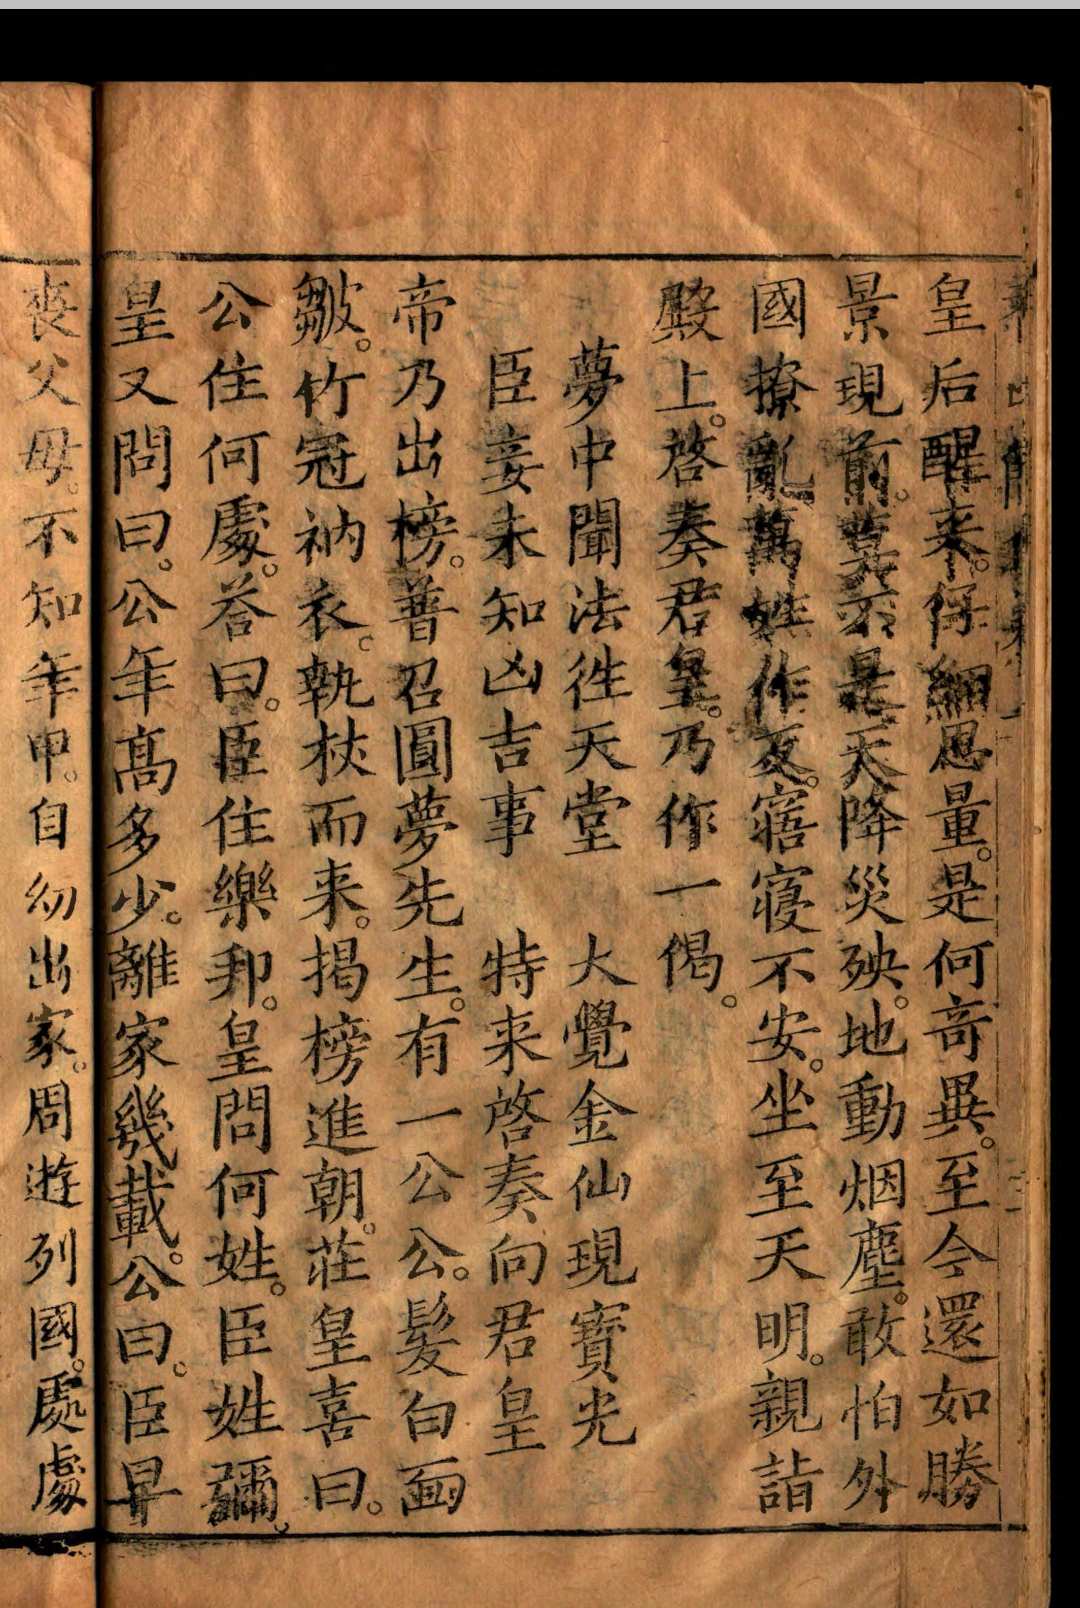 皇后醒来。仔細思量。是何竒異。至今還如勝
景現前。莫不是天降災殃。地動烟塵。敢怕外
國撩亂。萬姓作反。寤寢不安。坐至天明。親詣
殿上。啓奏君皇。乃作一偈。
夢中聞法徃天堂　大覺金仙現寶光
臣妾未知凶吉事　特来啓奏向君皇
帝乃出榜。普召圓夢先生。有一公公。髮白面
皺。竹冠衲衣。執杖而来。揭榜進朝。莊皇喜曰。
公住何處。荅曰。臣住樂邦。皇問何姓。臣姓彌。
皇又問曰。公年髙多少。離家幾載。公曰。臣早
喪父母。不知年甲。自幼出家。周遊列國。處處